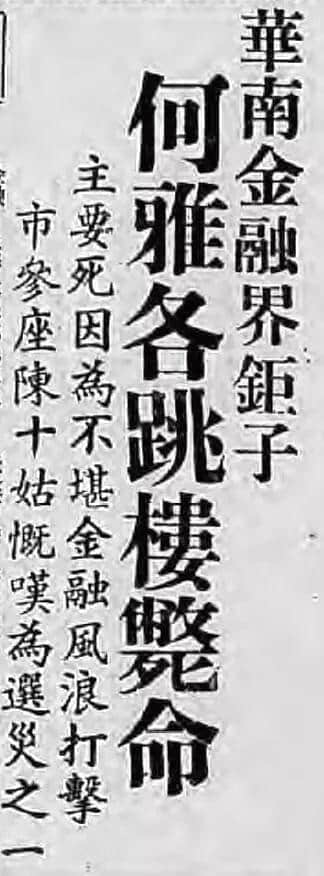 華南金融界鉅子
何雅各跳樓斃命
主要死因為不堪金融風浪打擊
市參座陳十姑慨嘆為選災之一